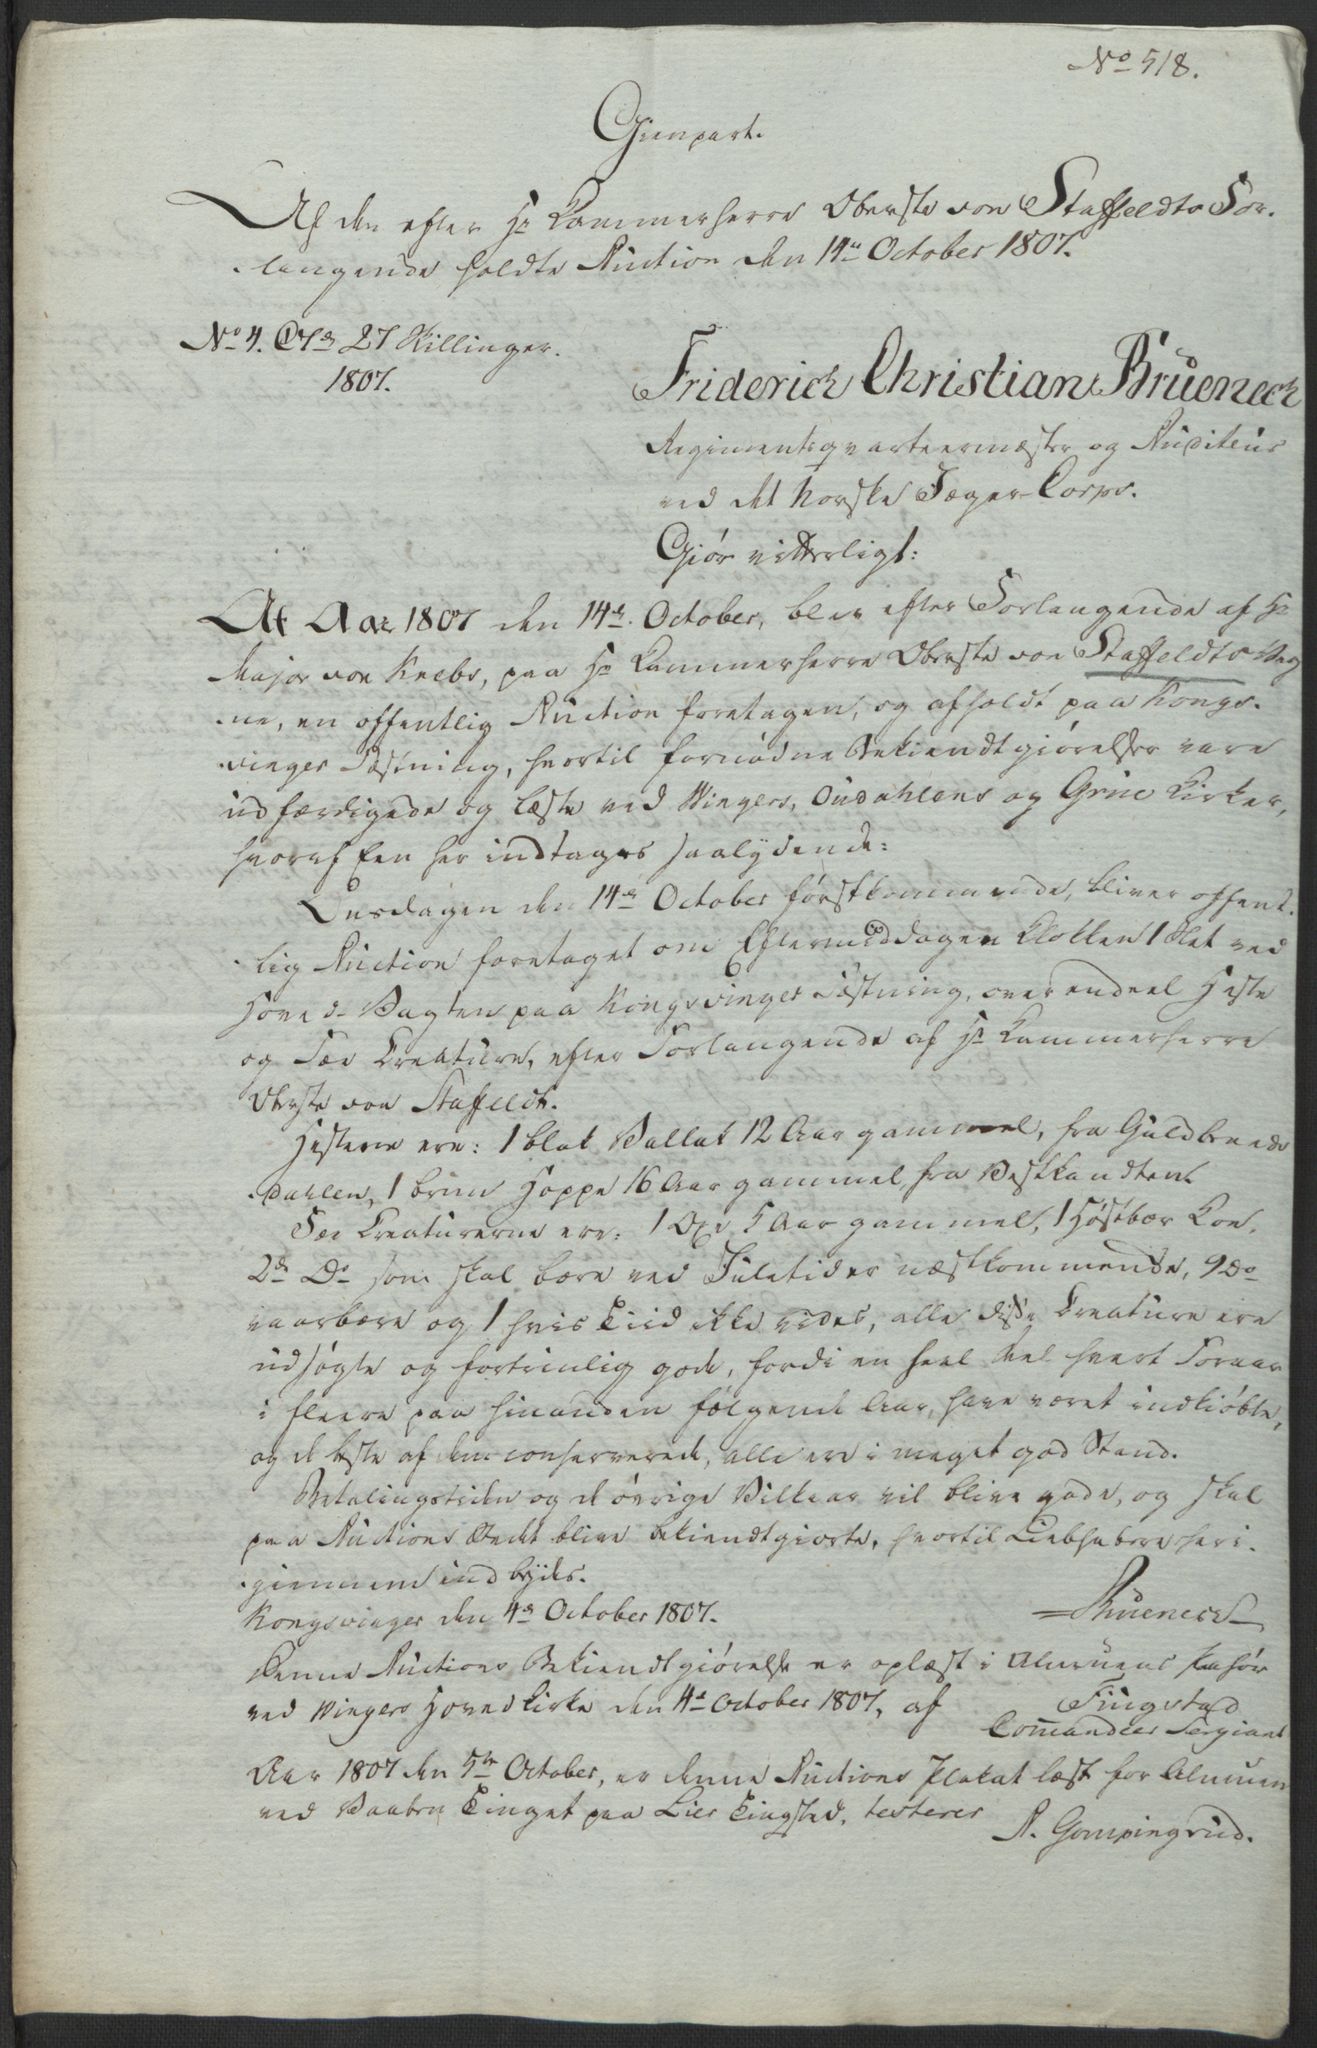 No 518.
Gienpart.
Af den efter Hr Kammerherre Oberste von Staffeldts For-
langende holdte Auction den 14de October 1807.
No 4. 27 Skillinger.
1807.
Friderich Christian Brueneck
Regimentsqvarteermester og Auditeur
ved det Norske Jæger-Corps.
Giør vitterligt:
At Aar 1807 den 14de October, blev efter Forlangende af Hr
Major von Krebs, paa Hr Kammerherre Oberste von Staffeldts Veg-
ne, en offentlig Auction foretagen, og afholdt paa Kongs-
vinger Fæstning, hvortil fornødne Bekiendtgiørelser vare
udfærdigede og læste ved Wingers, Oudahlens og Grue Kirker,
hvoraf Een her indtages saalydende:
Onsdagen den 14de October førstkommende, bliver offent-
lig Auction foretaget om Eftermiddagen Klokken 1 slet ved
Hoved-Vagten paa Kongsvinger Fæstning, over endeel Heste
og Fæe Creature, efter Forlangende af Hr Kammerherre
Oberste von Staffeldt.
Hestene ere: 1 blak Vallak 12 Aar gammel, fra Guldbrands-
dahlen, 1 bruun Hoppe 16 Aar gammel fra Vestkandten.
Fæe Creaturerne ere: 1 Oxe 5 Aar gammel, 1 Høstbær Koe,
2de Do som skal bære ved Juletider næstkommende, 9 Do
vaarbære og 1 hvis Tiid ikke vides, alle disse Creature ere
udsøgte og fortrinlig gode, fordi en heel Deel hvert Foraar
i fleere paa hinanden følgende Aar, have været indkiøbte,
og de beste af dem conserverede, alle ere i meget god Stand.
Betalingstiden og de øvrige Vilkaar vil blive gode, og skal
paa Auctions Stedet blive bekiendtgiorte, hvortil Liebhabere heri-
giennem indbydes.
Kongsvinger den 4de October 1807.
Brueneck
Denne Auctions Bekiendtgiørelse er oplæst i Almuens Paahør
ved Wingers Hovedkirke den 4de October 1807, af
Tingstad
Commandeer Sergiant
Aar 1807 den 5te October, er denne Auctions Plakat læst for Almuen
ved Vaaben Tinget paa Lier Tingsted, testerer
A. Gompingrud.